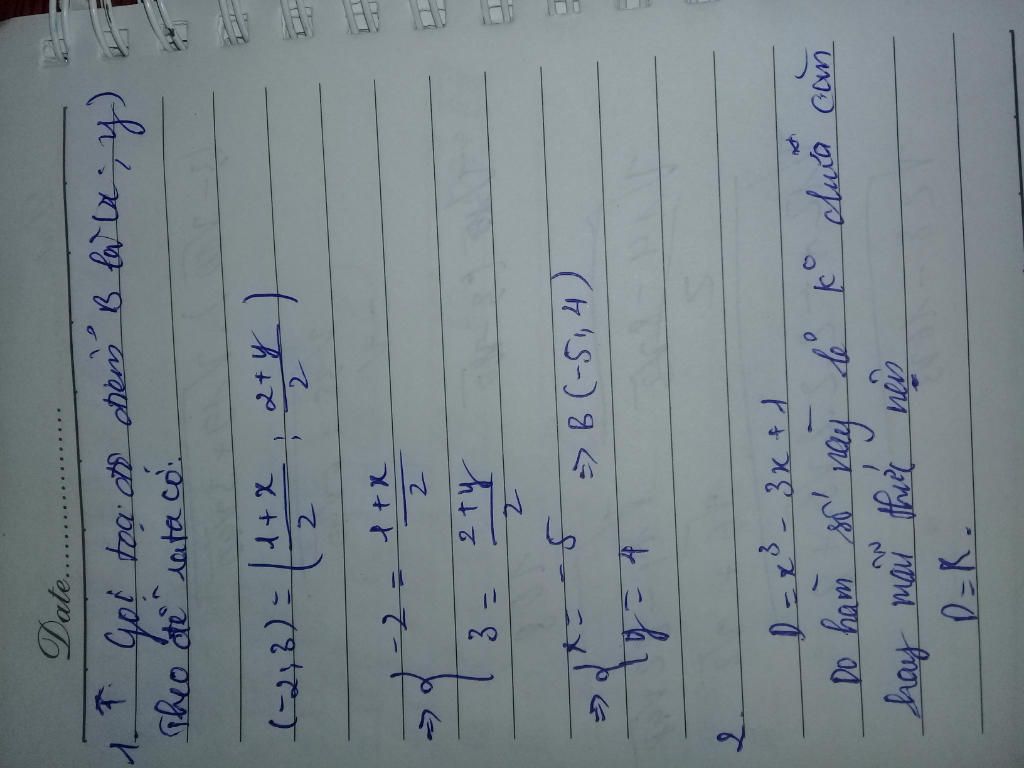 Date
1. Gọi tọa độ điểm B là (x; y)
Theo đề ra ta có:
(-2, 3) = (1+x/2 ; 2+y/2)
=> { -2 = 1+x/2
3 = 2+y/2
=> { x = -5 => B (-5, 4)
y = 4
2.
D = x³ - 3x + 1
Do hàm số này số k° chứa căn
hay mẫu thức nên
D = R.